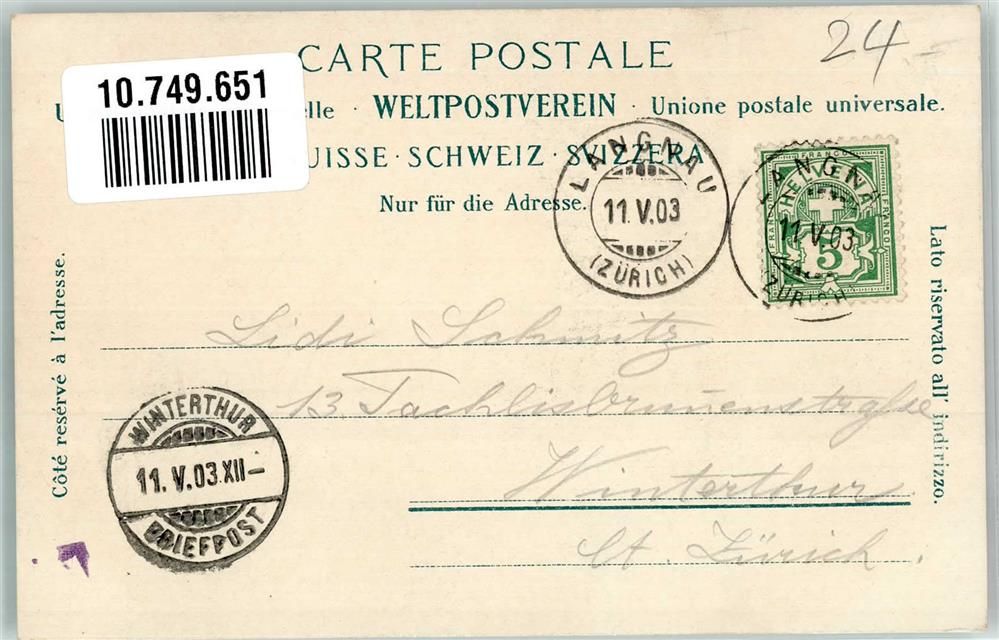 24-
CARTE POSTALE
10.749.651
U elle · WELTPOSTVEREIN · Unione postale universale.
UISSE · SCHWEIZ · SVIZZERA
Nur für die Adresse.
LANGNAU
11.V.03
(ZÜRICH)
FRANCO
HELVETIA
FRANCO
FRANCO
5
LANGNA
11.V.03
ZÜRICH
Côté resérvé à l'adresse.
Lato riservato all' indirizzo.
Lidi Schmitz
13 Tachlisbrunenstrasse
Winterthur
Ct. Zürich
WINTERTHUR
11.V.03.XII-
BRIEFPOST